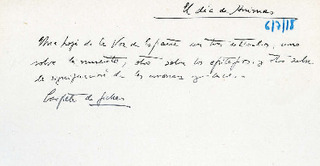 El día de Ánimas
6/7/78
Una hoja de la Voz de España con tres artículos, uno
sobre la muerte; otro sobre los epitafios y otro sobre
la significación de los
Carpeta de fichas